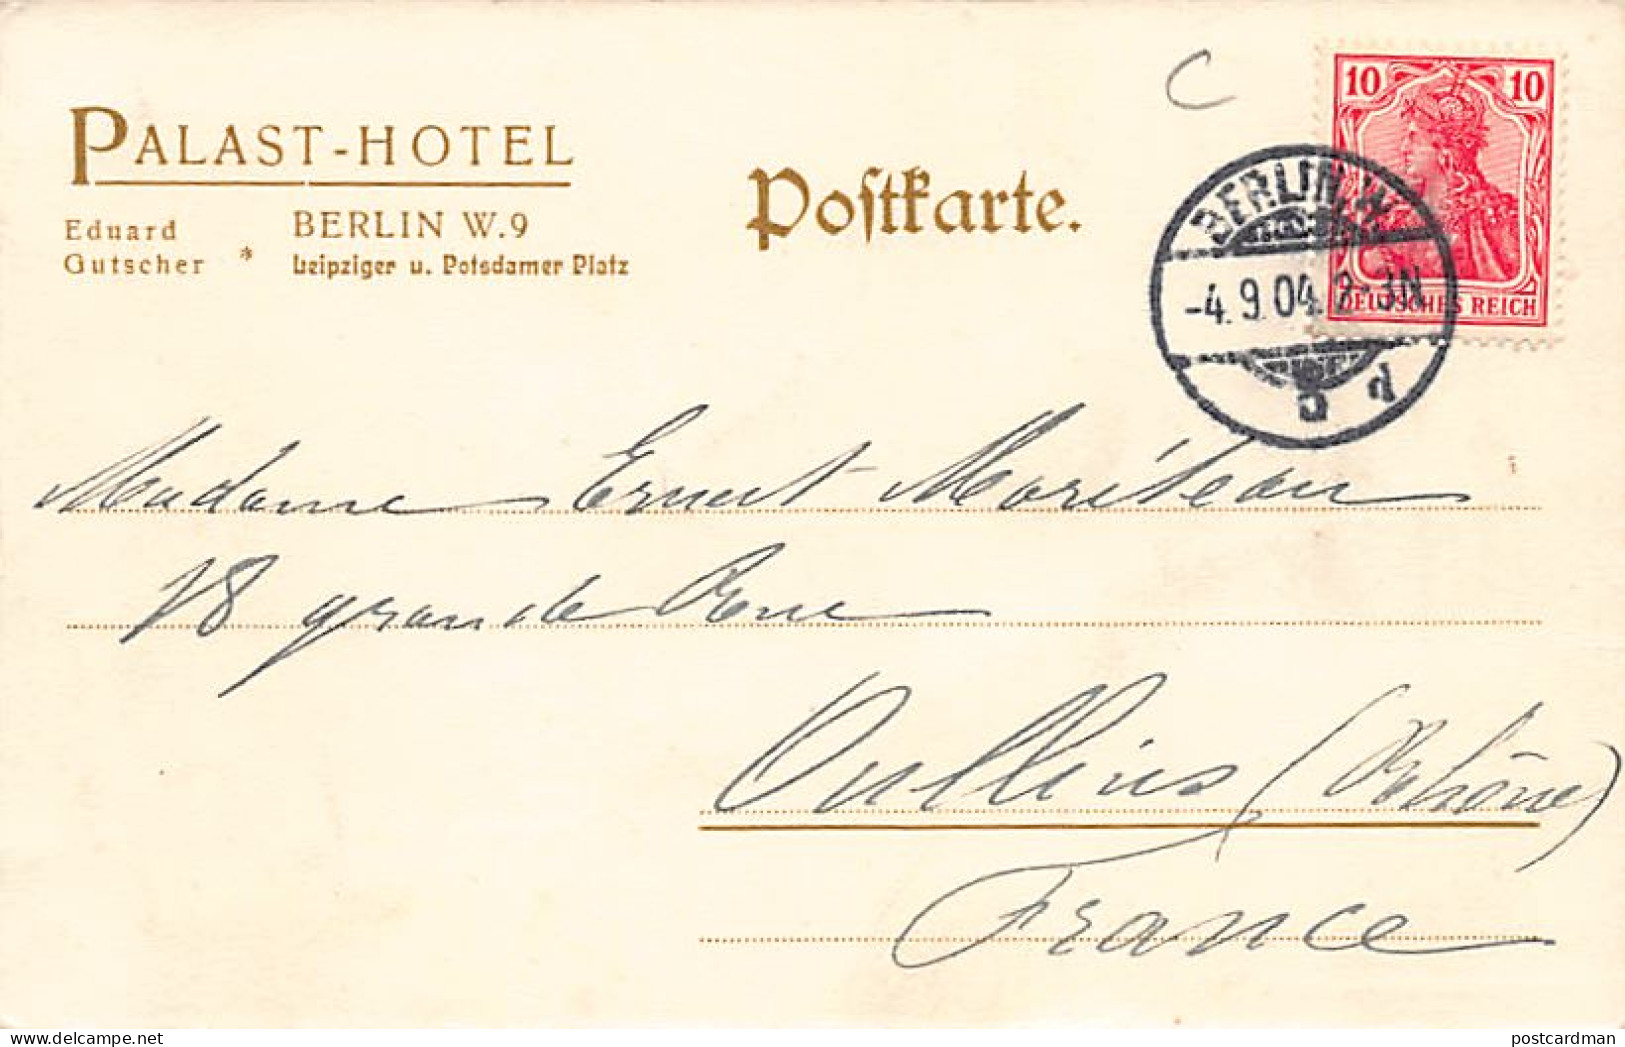 C
PALAST-HOTEL
Eduard Gutscher * BERLIN W.9
Leipziger u. Potsdamer Platz
Poſtkarte.
10 10
DEUTSCHES REICH
BERLIN, W.
-4.9.04. 2-3N
Madame Ernest Moriteau
18 grande Rue
Oullins (Rhône)
France
postcardman